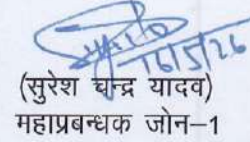 16/5/26
(सुरेश चन्द्र यादव)
महाप्रबन्धक जोन–1